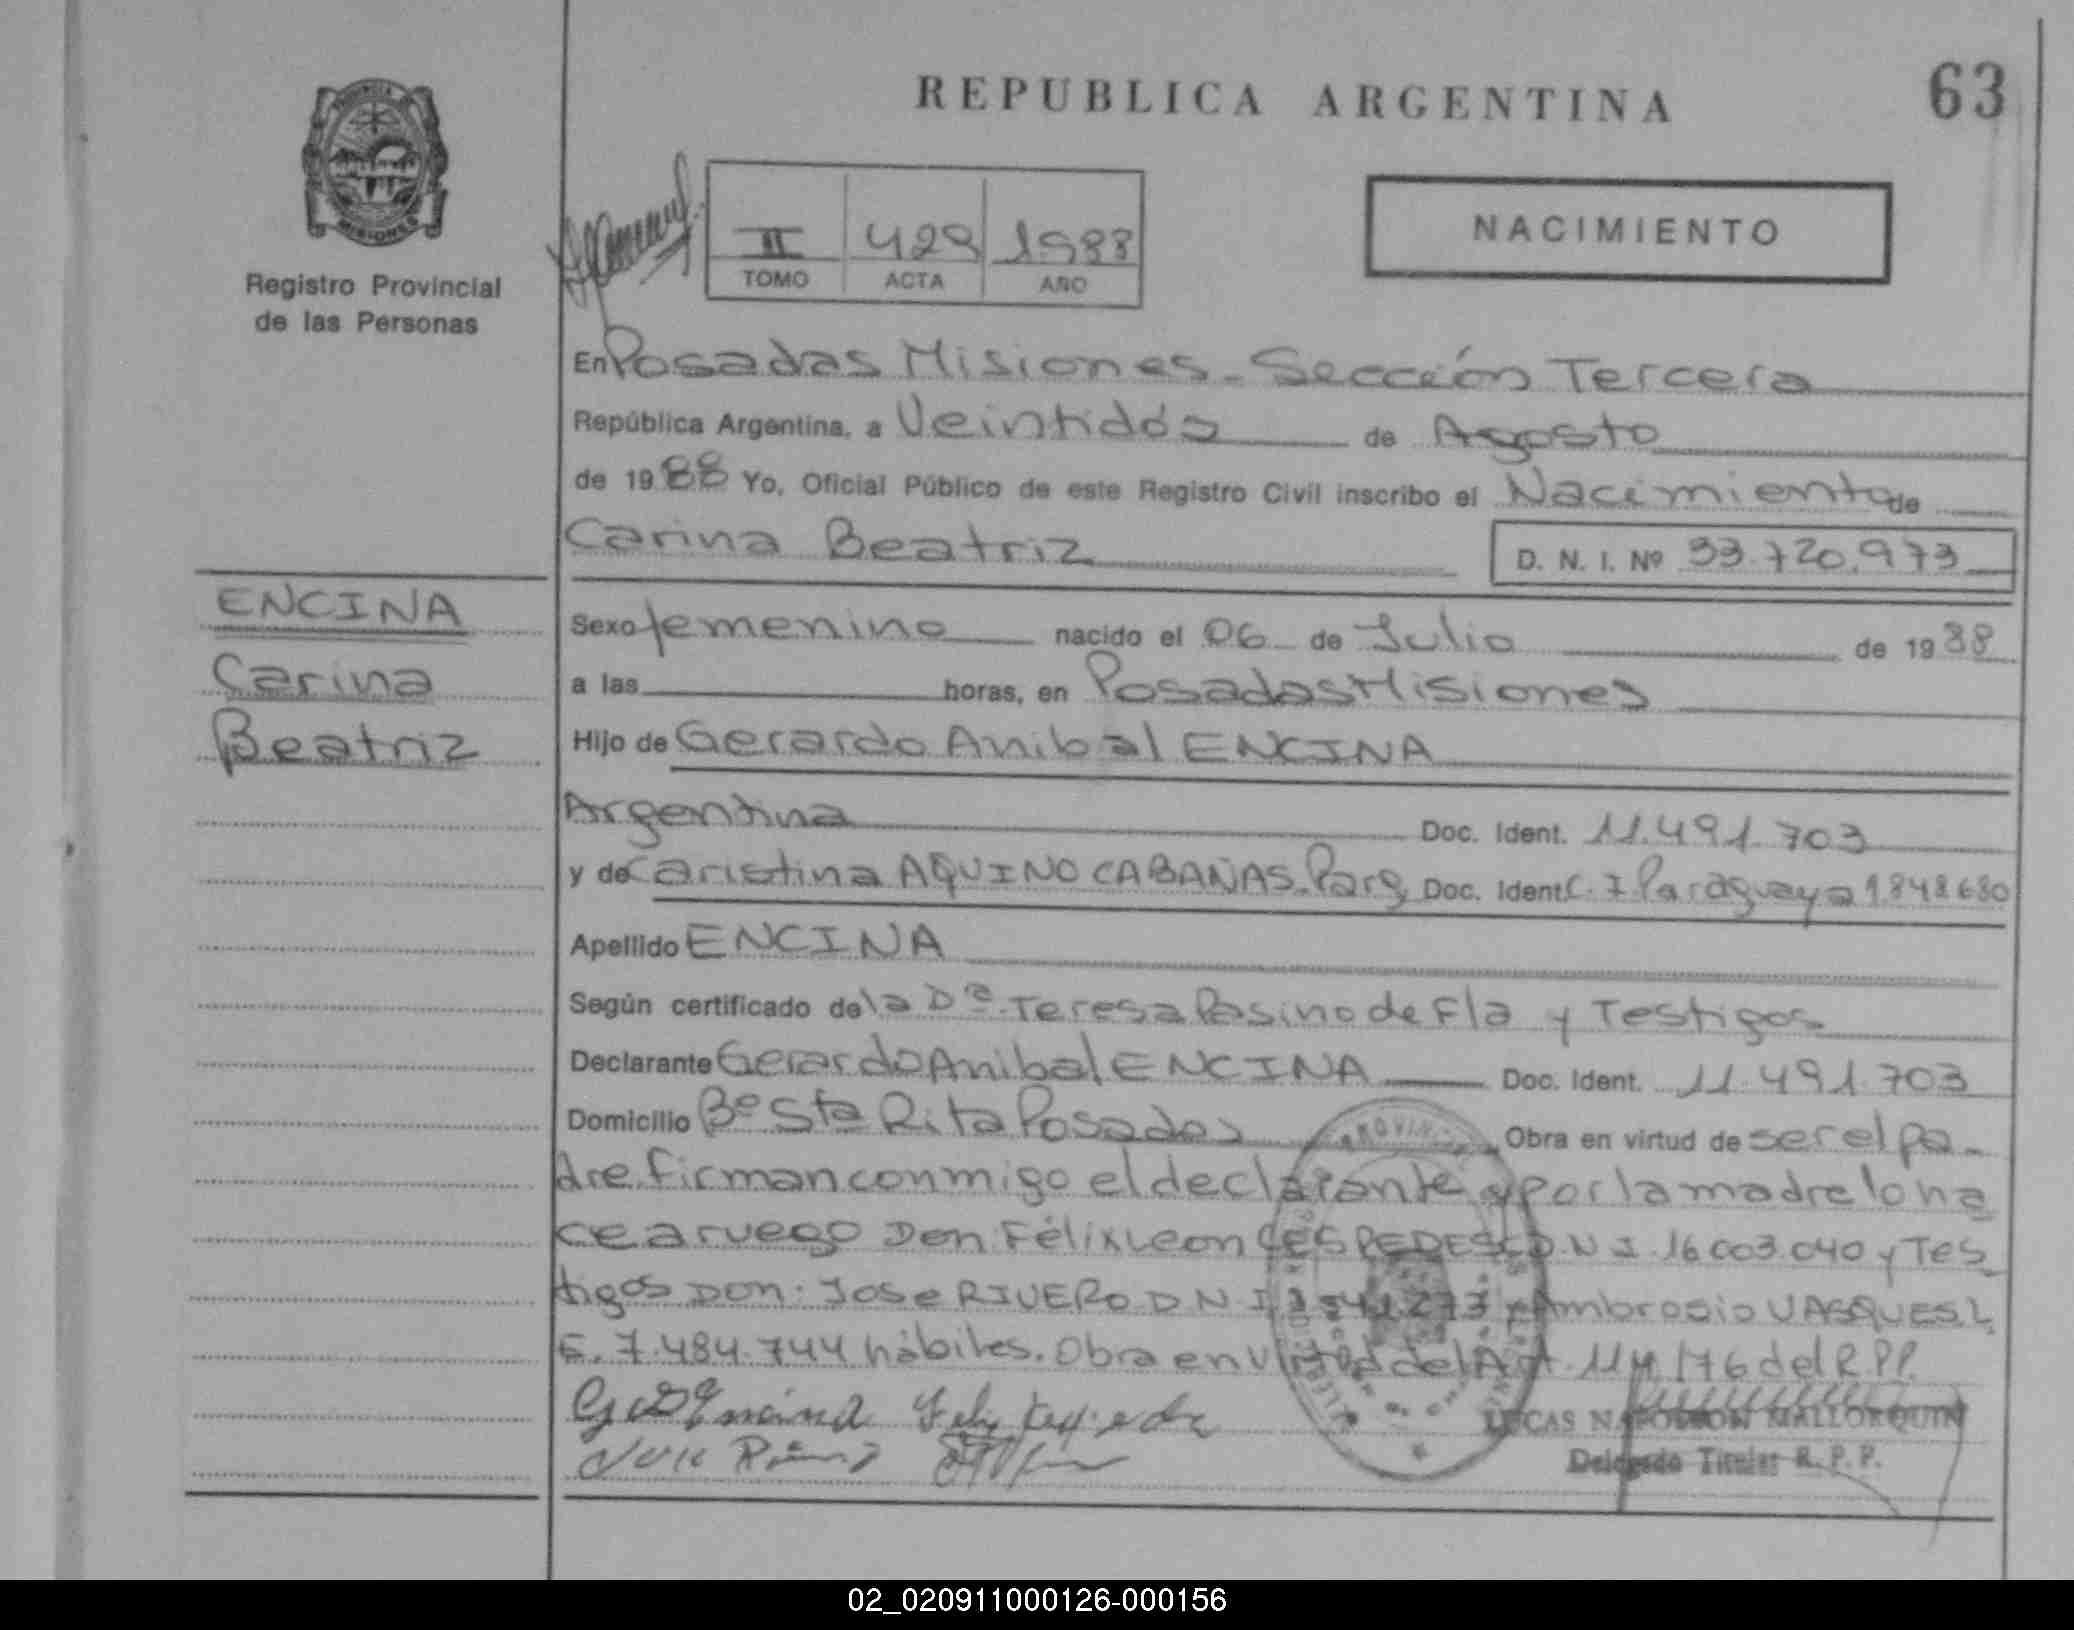 REPUBLICA ARGENTINA
63
PROVINCIA DE
MISIONES
Registro Provincial
de las Personas
II 429 1988
TOMO ACTA AÑO
NACIMIENTO
En Posadas Misiones - Sección Tercera
República Argentina, a Veintidós de Agosto
de 1988 Yo, Oficial Público de este Registro Civil inscribo el Nacimiento de
Carina Beatriz
D. N. I. Nº 33.720.973
ENCINA
Carina
Beatriz
Sexo femenino nacido el 06 de Julio de 1988
a las horas, en Posadas Misiones
Hijo de Gerardo Anibal ENCINA
Argentina Doc. Ident. 11.491.703
y de Caristina AQUINO CABAÑAS. Parg, Doc. Ident C. I. Paraguaya 1.848.680
Apellido ENCINA
Según certificado de la Dª. Teresa Pasino de Fla y Testigos
Declarante Gerardo Anibal ENCINA Doc. Ident. 11.491.703
Domicilio Bº Sta Rita Posadas Obra en virtud de ser el pa-
dre. firman conmigo el declarante y por la madre lo ha
ce a ruego Don Félix Leon CESPEDES D.N.I. 16.003.040 y Tes
tigos Don: Jose RIVERO D N I y Ambrosio VASQUES L.
E. 7.484.744 hábiles. Obra en Virtud del Art. 114/76 del R.P.P.
LUCAS NAPOLEON MALLORQUIN
Delegado Titular R. P. P.
02_020911000126-000156